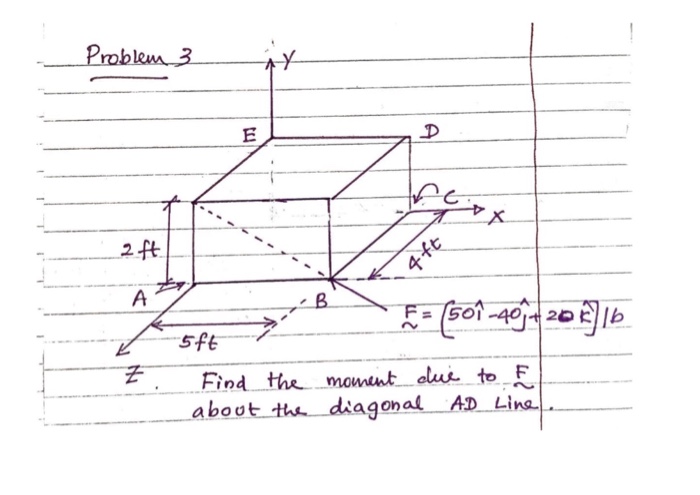 Problem 3
Y
E
D
C
X
2 ft
4 ft
A
B
5ft
F = [50î -40ĵ + 20 k̂] lb
Z.
Find the moment due to F
about the diagonal AD Line.